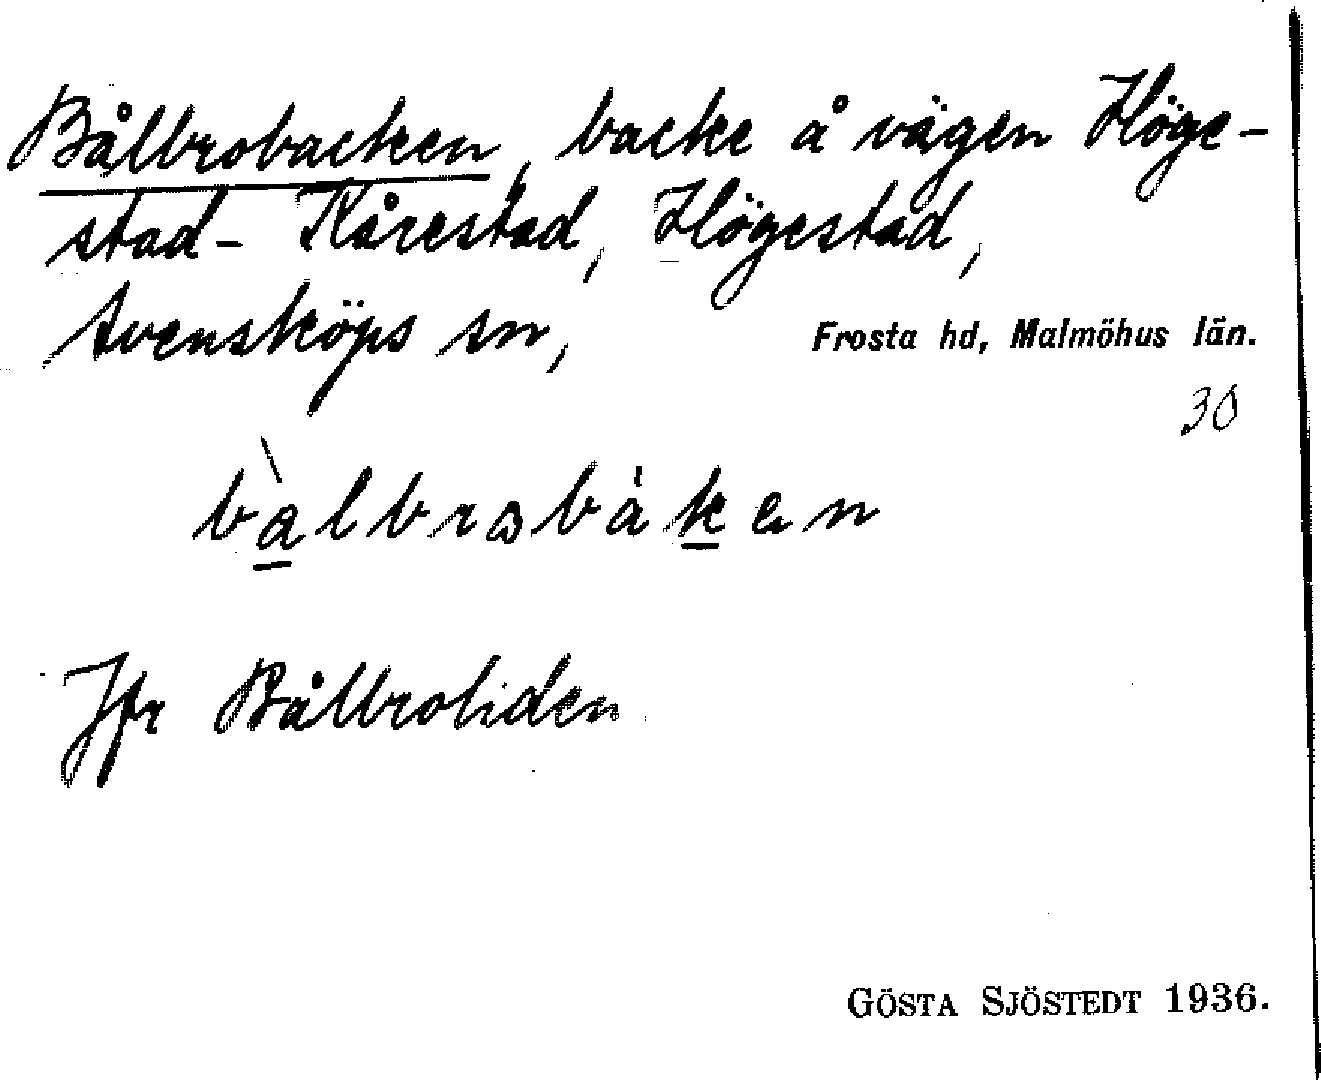 Bålbrobacken, backe å vägen Höge-
stad - Kårestad, Högestad,
Svensköps sn,
Frosta hd, Malmöhus län.
30
Jfr Bålbroliden
GÖSTA SJÖSTEDT 1936.